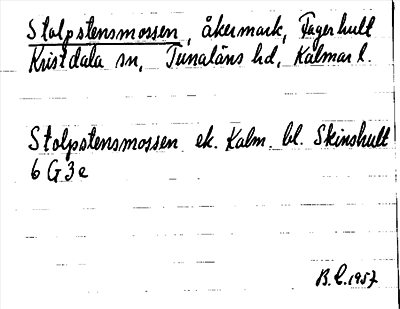 Stolpstensmossen, åkermark, Fagerhult
Kristdala sn, Tunaläns hd, Kalmar l.
Stolpstensmossen ek. Kalm. bl. Skinshult
6 G 3 e
B.L. 1957